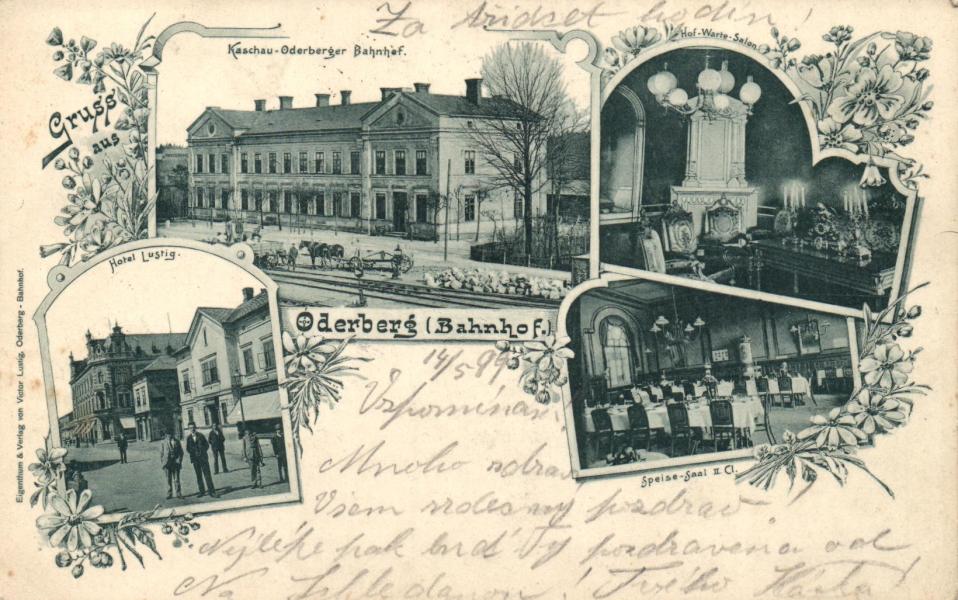 Za třidset hodin!
Kaschau-Oderberger Bahnhof.
Hof-Warte-Salon.
Gruss
aus
Hotel Lustig.
Oderberg (Bahnhof.)
Speise-Saal II Cl.
Eigenthum & Verlag von Victor Lustig, Oderberg-Bahnhof.
14/5 99
Vzpomínám!
Mnoho zdraví
Všem srdečný pozdrav
Nejlépe pak buď Vy pozdravena od
Na Shledanou!